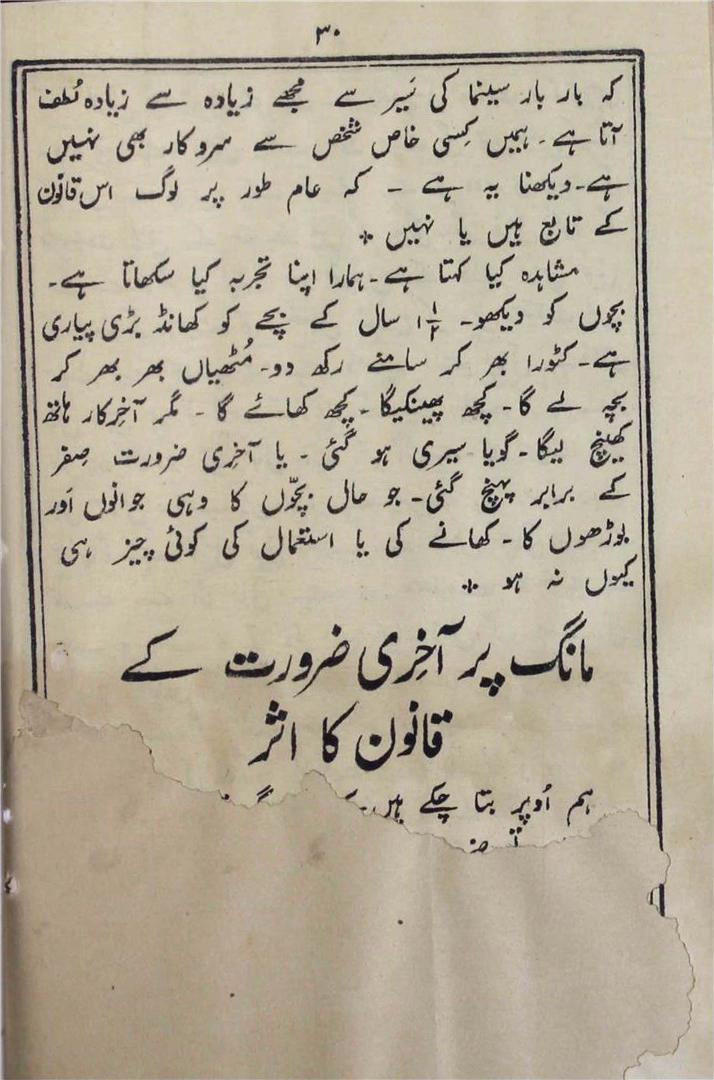 ۳۰
کہ بار بار سینما کی سَیر سے مجھے زیادہ سے زیادہ لُطف
آتا ہے۔ ہمیں کِسی خاص شخص سے سروکار بھی نہیں
ہے۔ دیکھنا یہ ہے ۔ کہ عام طور پر لوگ اس قانون
کے تابع ہیں یا نہیں *
مشاہدہ کیا کہتا ہے۔ ہمارا اپنا تجربہ کیا سکھاتا ہے۔
بچوں کو دیکھو۔ ۱½ سال کے بچے کو کھانڈ بڑی پیاری
ہے۔ کٹورا بھر کر سامنے رکھ دو۔ مُٹھیاں بھر بھر کر
بچہ لے گا۔ کچھ پھینکیگا۔ کچھ کھائے گا ۔ مگر آخرِکار ہاتھ
کھینچ لیگا۔ گویا سیری ہو گئی ۔ یا آخری ضرورت صِفر
کے برابر پہنچ گئی۔ جو حال بچّوں کا وہی جوانوں اَور
بوڑھوں کا ۔ کھانے کی یا استعمال کی کوئی چیز ہی
کیوں نہ ہو *
مانگ پر آخِری ضرورت کے
قانون کا اثر
ہم اُوپر بتا چکے ہیں